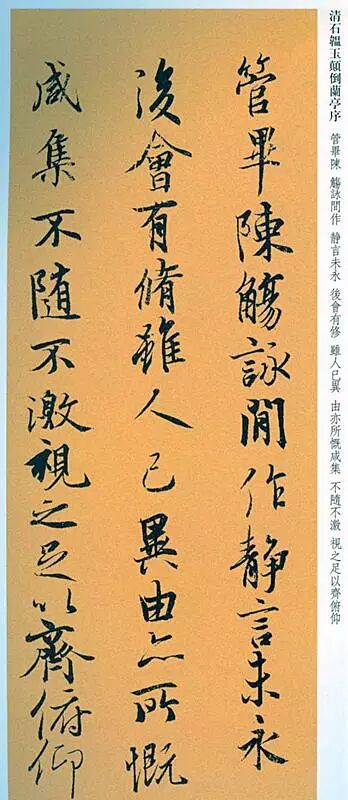 清石韞玉顛倒蘭亭序
管畢陳 觴詠問作 静言未永 後會有修 雖人已異 由亦所慨咸集 不隨不激 視之足以齊俯仰
管畢陳觴詠閒作静言未永
後會有脩雖人已異由亦所慨
咸集不隨不激視之足以齊俯仰